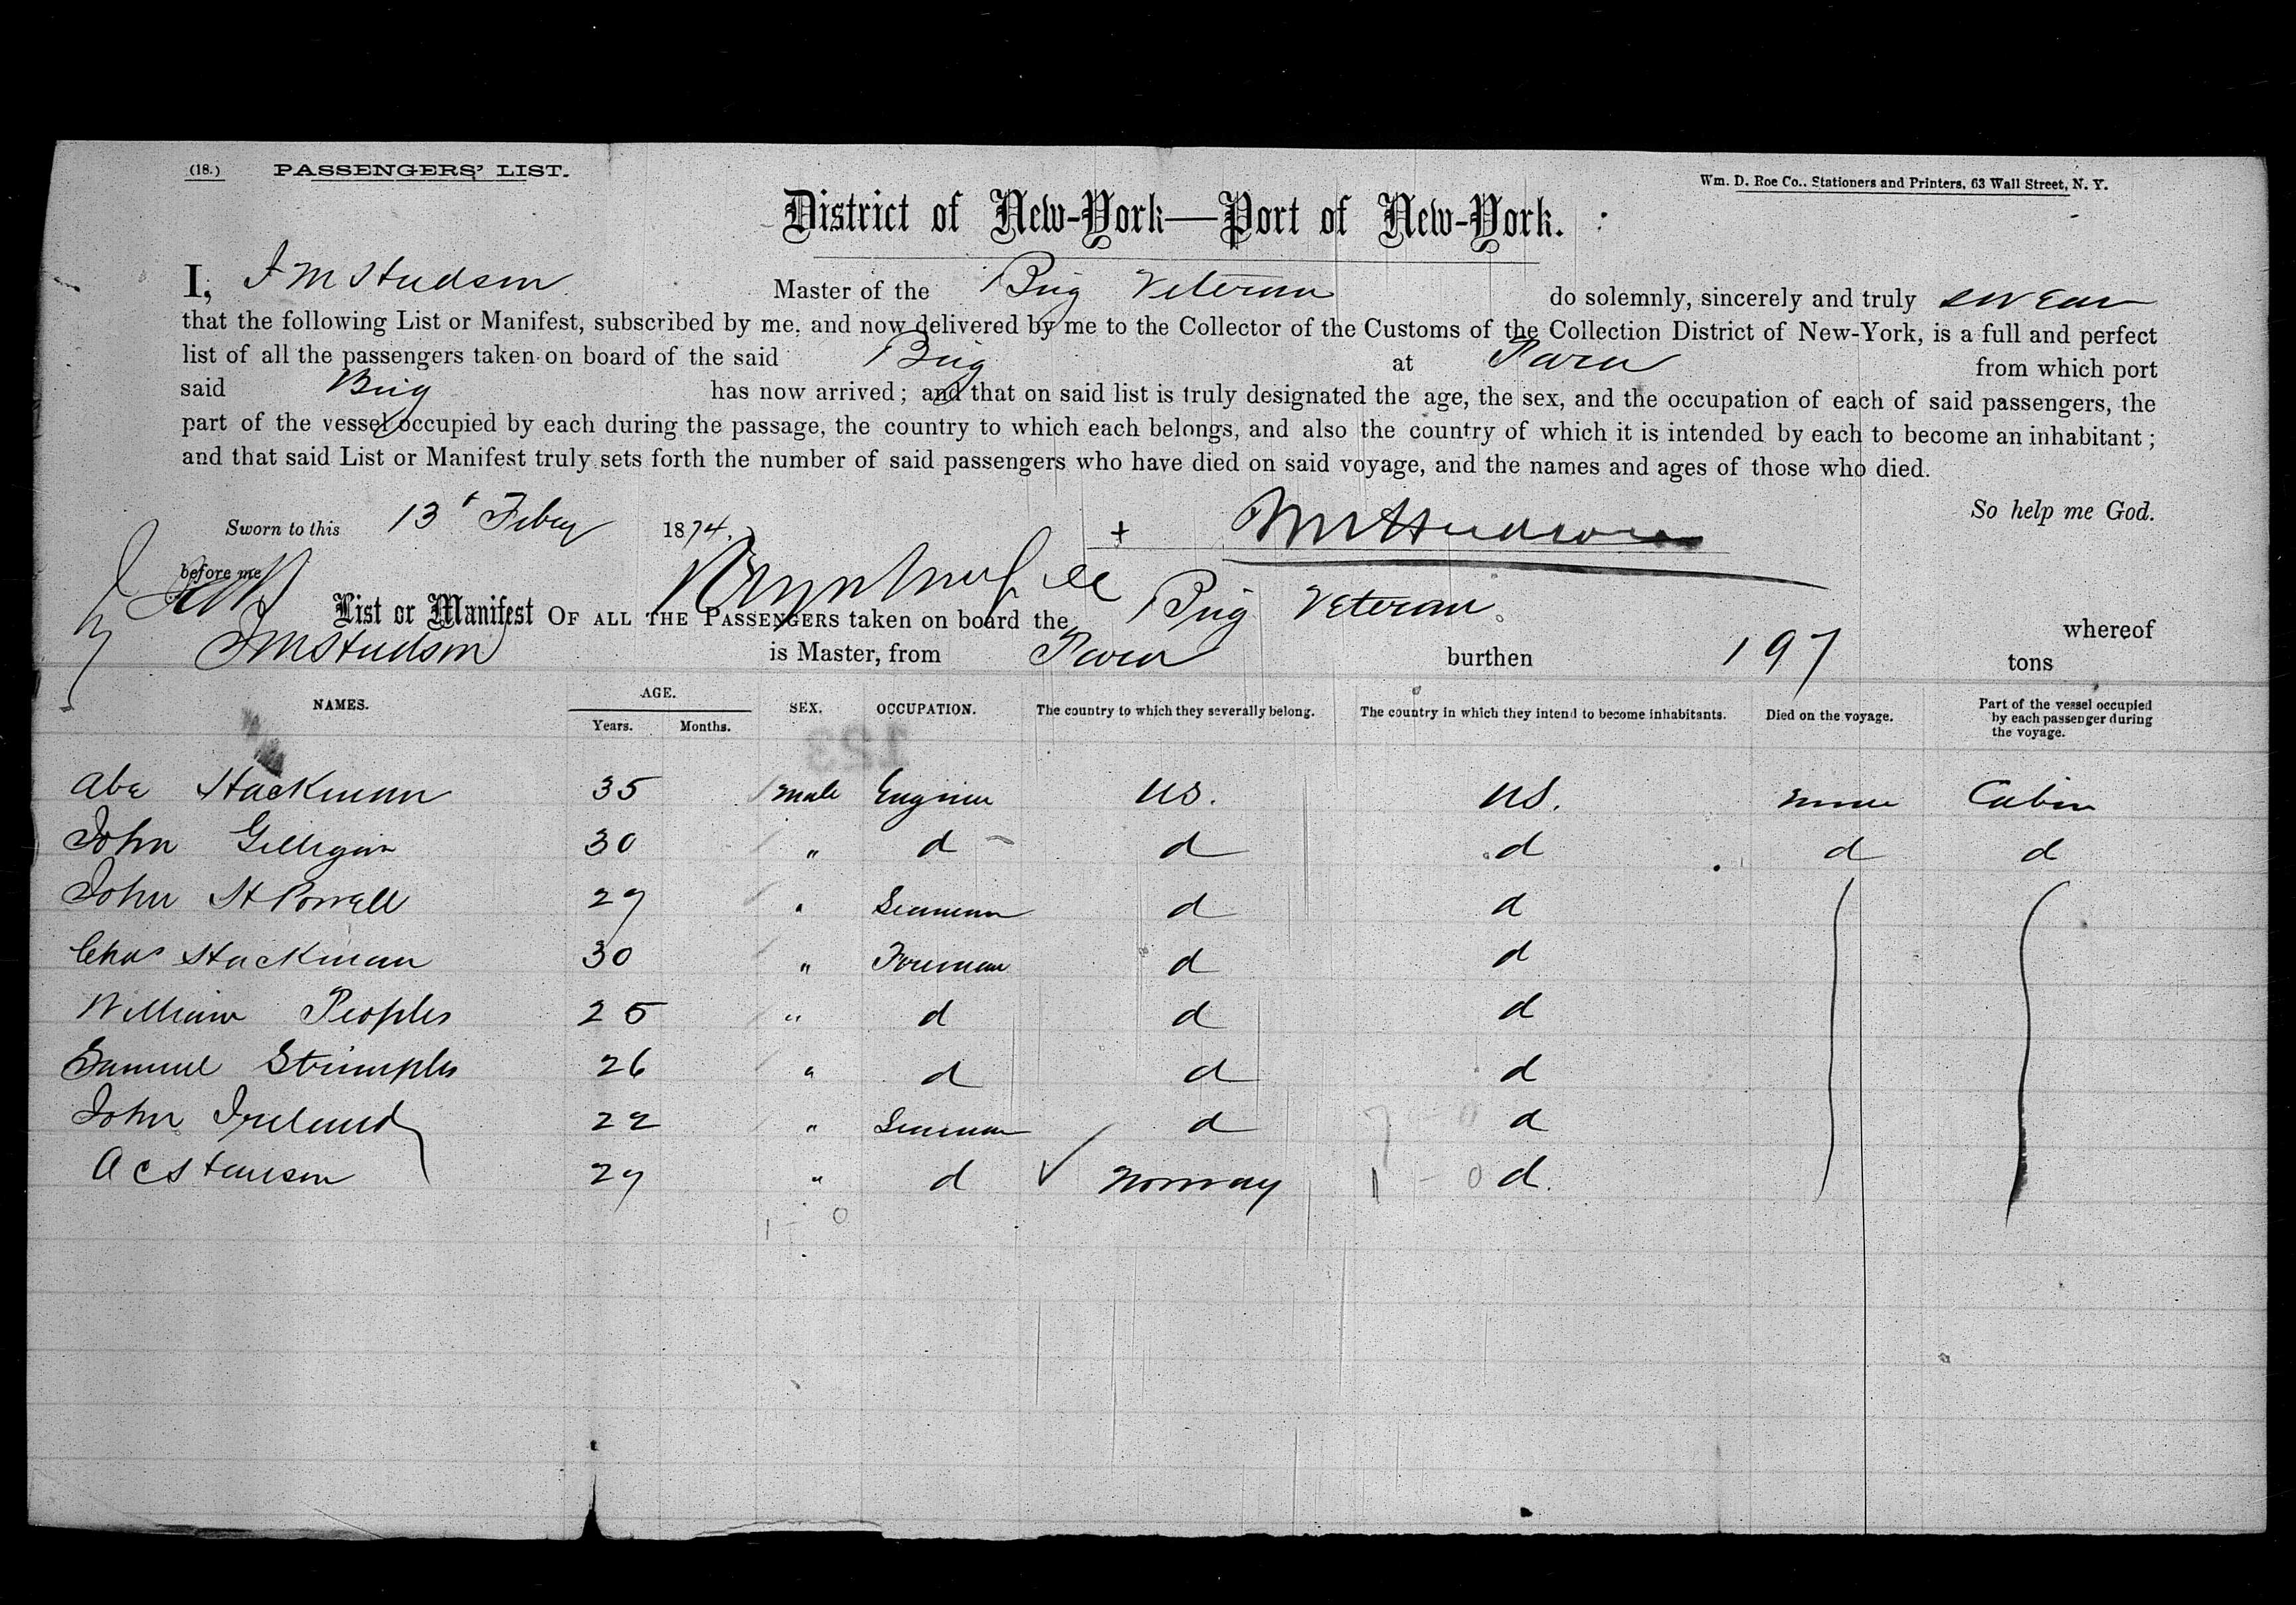 (18.) PASSENGERS' LIST.
Wm. D. Roe Co., Stationers and Printers, 63 Wall Street, N. Y.
District of New-York—Port of New-York.
I, J M Hudson Master of the Brig Veteran do solemnly, sincerely and truly swear
that the following List or Manifest, subscribed by me, and now delivered by me to the Collector of the Customs of the Collection District of New-York, is a full and perfect
list of all the passengers taken on board of the said Brig at Para from which port
said Brig has now arrived; and that on said list is truly designated the age, the sex, and the occupation of each of said passengers, the
part of the vessel occupied by each during the passage, the country to which each belongs, and also the country of which it is intended by each to become an inhabitant;
and that said List or Manifest truly sets forth the number of said passengers who have died on said voyage, and the names and ages of those who died.
So help me God.
Sworn to this 13 Feby 1874. + JM Hudson
before me
List or Manifest OF ALL THE PASSENGERS taken on board the Brig Veteran whereof
JM Hudson is Master, from Para burthen 197 tons
NAMES. AGE. Years. Months. SEX. OCCUPATION. The country to which they severally belong. The country in which they intend to become inhabitants. Died on the voyage. Part of the vessel occupied by each passenger during the voyage.
123
Abe Hackman 35 male Engineer US. US. none Cabin
John Gilligan 30 " d d d d d
John H Powell 27 " Seaman d d
Chas Hackman 30 " Foreman d d
William Peoples 25 " d d d
Samuel Strimples 26 " d d d
John Ireland 22 " Seaman d d
A C Stenson 27 " d ✓ Norway 1 - 0 d.
1 - 0